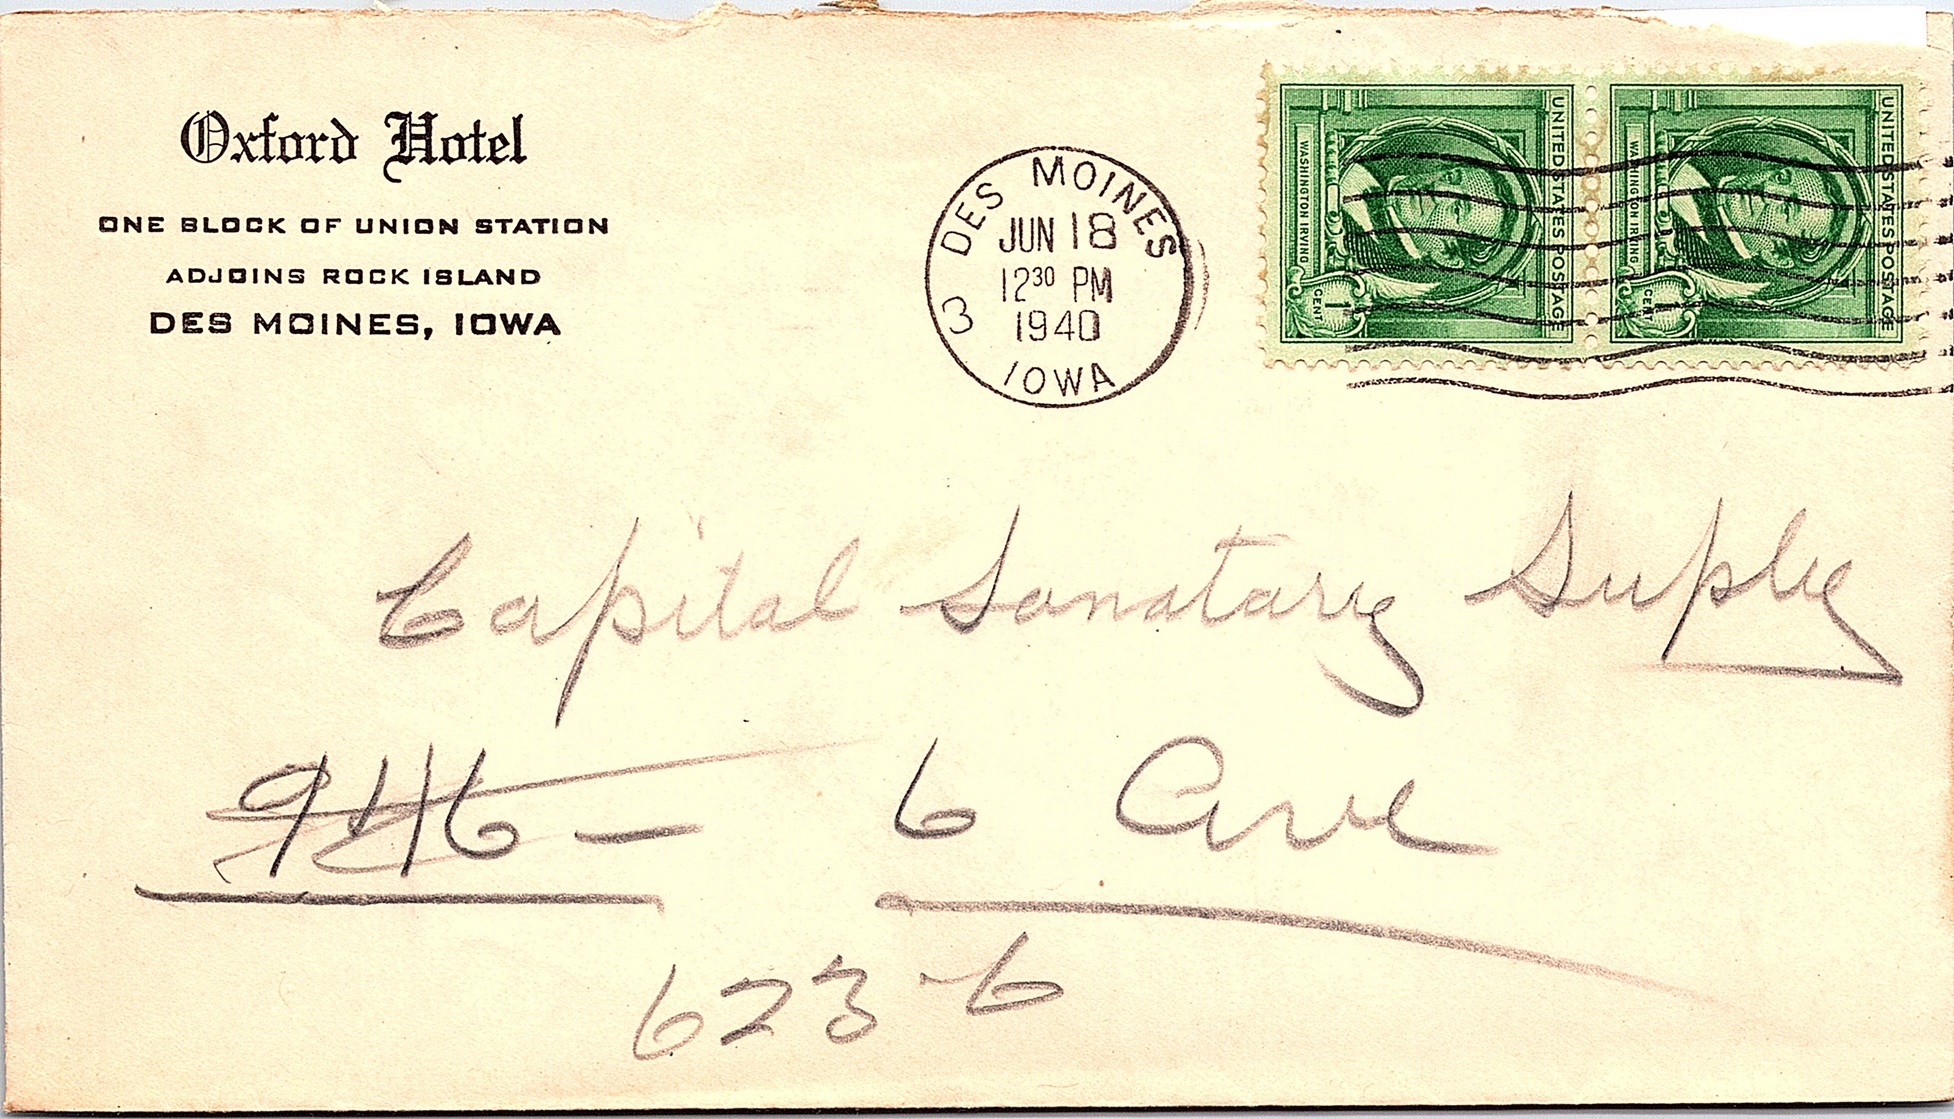 Oxford Hotel
ONE BLOCK OF UNION STATION
ADJOINS ROCK ISLAND
DES MOINES, IOWA
DES MOINES
JUN 18
12 30 PM
1940
3
IOWA
UNITED STATES POSTAGE
WASHINGTON IRVING
1 CENT
UNITED STATES POSTAGE
WASHINGTON IRVING
1 CENT
Capital Sanatary Suply
6 Ave
623-6